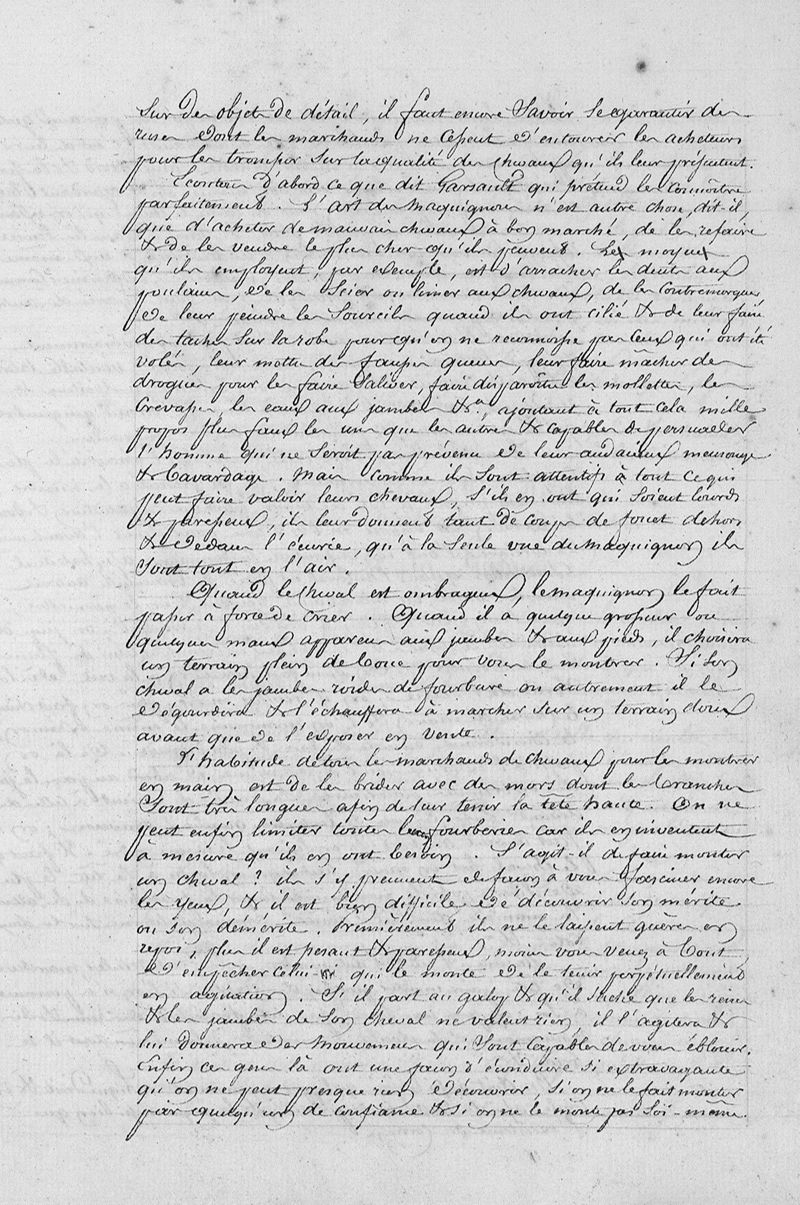 sur des objets de détail, il faut encore savoir se garantir des
ruses dont les marchands ne cessent d'entourer les acheteurs
pour les tromper sur la qualité des chevaux qu'ils leur présentent.
Ecoutons d'abord ce que dit Garsault qui prétend les connoître
parfaitement. L'art du Maquignon n'est autre chose, dit-il,
que d'acheter de mauvais chevaux à bon marché, de les refaire
& de les vendre le plus cher qu'ils peuvent. Les moyens
qu'ils employent, par exemple, est d'arracher les dents aux
poulains, de les scier ou limer aux chevaux, de les contremarquer
de leur peindre les sourcils quand ils ont cilié & de leur faire
des taches sur la robe pour qu'on ne reconnoisse pas ceux qui ont été
volés, leur mettre des fausses queues, leur faire mâcher des
drogues pour les faire saliver, faire disparoître les mollettes, les
crevasses, les eaux aux jambes &a, ajoutant à tout cela mille
propos plus faux les uns que les autres & capables de persuader
l'homme qui ne seroit pas prévenu de leur audacieux mensonge
& bavardage. Mais comme ils sont attentifs à tout ce qui
peut faire valoir leurs chevaux, s'ils en ont qui soient lourds
& paresseux, ils leur donnent tant de coups de fouet dehors
& dedans l'écurie, qu'à la seule vue du maquignon ils
sont tout en l'air.
Quand le cheval est ombrageux, le maquignon le fait
passer à force de crier. Quand il a quelque grosseur ou
quelques maux apparens aux jambes & aux pieds, il choisira
un terrain plein de boue pour vous le montrer. Si son
cheval a les jambes roides de fourbure ou autrement il le
dégourdira & l'échauffera à marcher sur un terrain doux
avant que de l'exposer en vente.
L'habitude de tous les marchands de chevaux pour les montrer
en main est de les brider avec des mors dont les branches
sont très longues afin de leur tenir la tête haute. On ne
peut enfin limiter toutes leurs fourberies car ils en inventent
à mesure qu'ils en ont besoin. S'agit-il de faire monter
un cheval? ils s'y prennent de façon à vous fasciner encore
les yeux, & il est bien difficile de découvrir son mérite
ou son démérite. Premièrement ils ne le laissent guères en
repos, plus il est pesant & paresseux, moins vous venez à bout
d'empêcher celui qui le monte de le tenir perpétuellement
en agitation. Si il part au galop & qu'il sache que les reins
& les jambes de son cheval ne valent rien, il l'agitera &
lui donnera des mouvemens qui sont capables de vous éblouir.
Enfin ces gens là ont une façon d'éconduire si extravagante
qu'on ne peut presque rien découvrir, si on ne le fait monter
par quelqu'un de confiance & si on ne le monte pas soi-même.